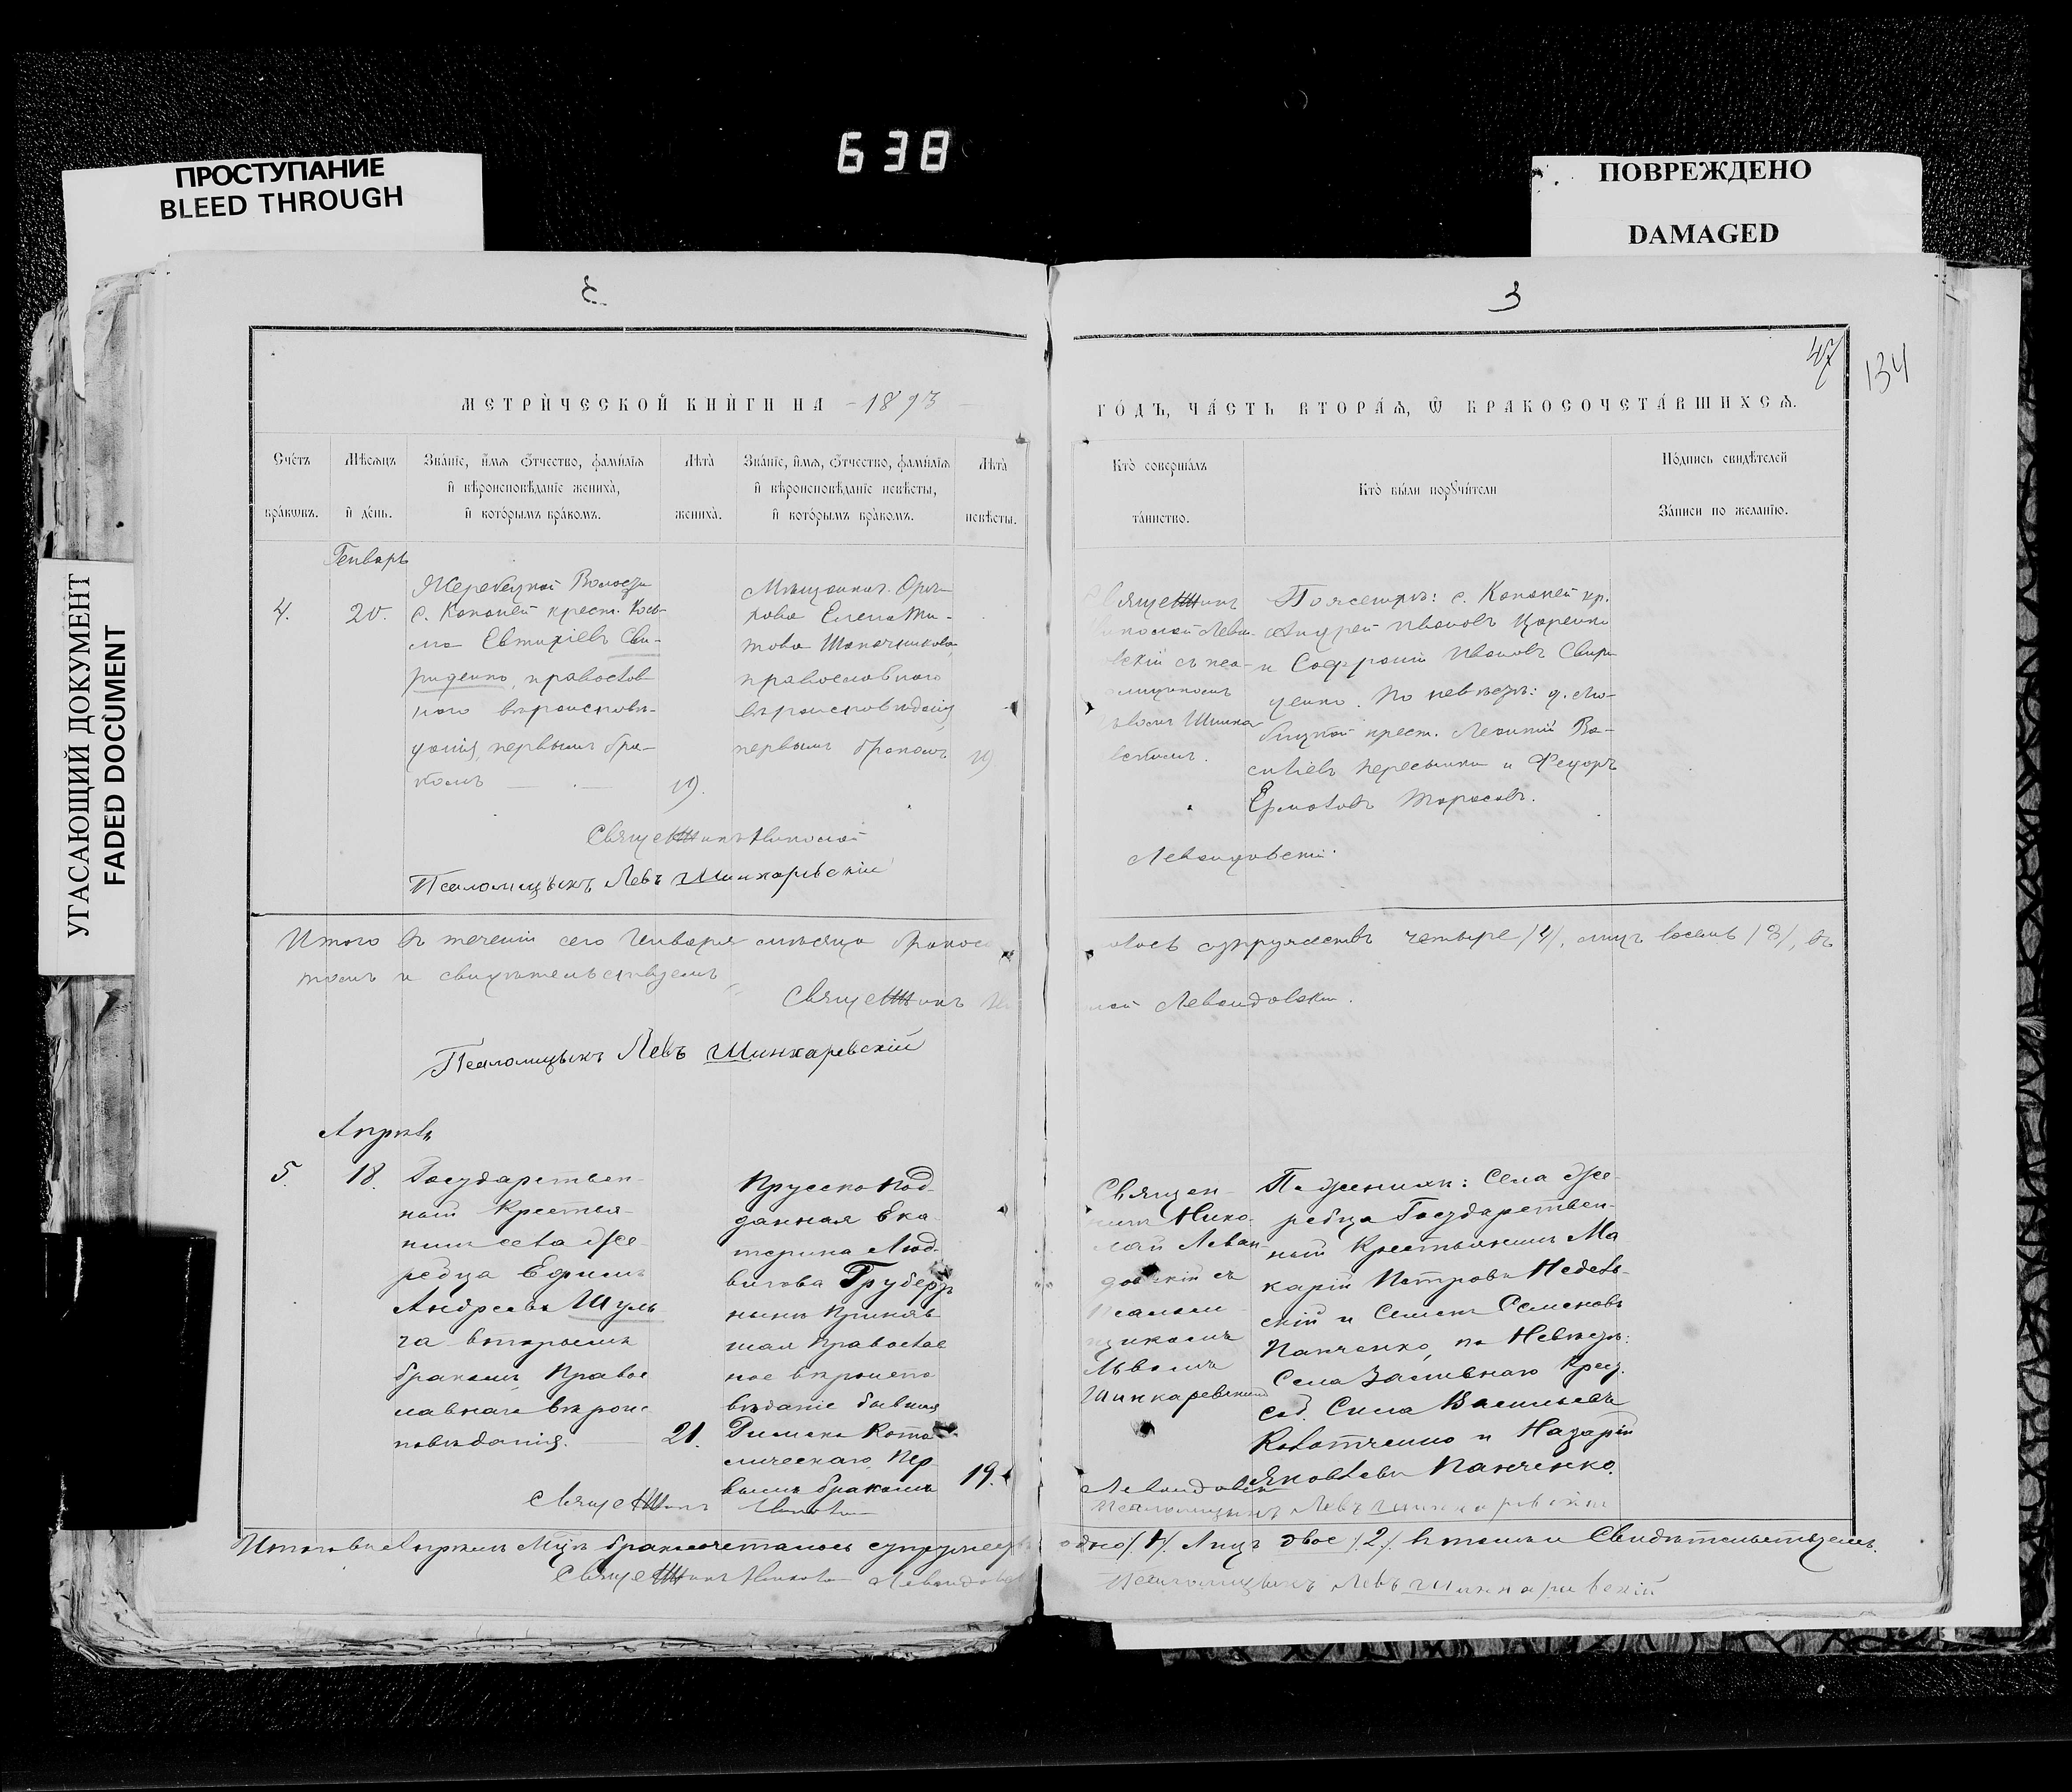 638
ПРОСТУПАНИЕ
BLEED THROUGH
ПОВРЕЖДЕНО
DAMAGED
УГАСАЮЩИЙ ДОКУМЕНТ
FADED DOCUMENT
47
134
МЕТРИЧЕСКОЙ КНИГИ НА 1893
ГОДЪ, ЧАСТЬ ВТОРАЯ, Ѿ БРАКОСОЧЕТАВШИХСЯ.
Счетъ браковъ.
Мѣсяцъ и день.
Званіе, имя отчество, фамилія
и вѣроисповѣданіе жениха,
и которымъ бракомъ.
Лѣта жениха.
Званіе, имя, отчество, фамилія
и вѣроисповѣданіе невѣсты,
и которымъ бракомъ.
Лѣта невѣсты.
Кто совершалъ таинство.
Кто были поручители
Подпись свидѣтелей
Записи по желанію.
Генварь
4.
20.
Жеребецкой Волости
с. Копаней крест. Козь-
ма Евтихіевъ Сви-
риденко, православ
наго вѣроисповѣ-
данія, первымъ бра-
комъ
19.
Мѣщанка Орѣ-
хова Елена Ти-
това Шапочникова
православнаго
вѣроисповѣданія
первымъ бракомъ
19.
По женихѣ: с. Копаней кр.
Андрей Ивановъ Царенко
и Софроній Ивановъ Свири
денко. По невѣстѣ:
крест. Леонтій Ва-
силіевъ и Федоръ
Ермолаевъ Тарасовъ.
Священникъ Николай
Левандовскій.
Псаломщикъ Левъ Шинкаревскій
Итого въ теченіи сего Генваря мѣсяца
супружествъ четыре /4/, лицъ восемь /8/, въ
томъ и свидѣтельствуемъ
Священникъ
Левандовскій.
Псаломщикъ Левъ Шинкаревскій
Апрѣль
5.
18.
Государствен-
ный Крестья-
нинъ села Же-
ребца Ефимъ
Андреевъ Шуль
га вторымъ
бракомъ, Правос
лавнаго вѣроис
повѣданія.
21.
Прусско под-
данная Ека
терина Люд-
вигова Груберъ
нынѣ Приняв
шая Православ
ное вѣроиспо
вѣданіе бывшая
Римско Като
лическаго, Пер
вымъ бракомъ
19.
Священ-
никъ Нико-
лай Леван-
довскій съ
Псалом
щикомъ
Львомъ
Шинкаревскимъ
По женихѣ: Села Же-
ребца Государствен-
ный Крестьянинъ Ма
карій Петровъ
и Семенъ Семеновъ
Панченко, по Невѣстѣ:
Села Заливнаго Крест.
Сила Васильевъ
и Назарій
Яковлевъ Панченко.
Священникъ Николай
Левандовскій
Псаломщикъ Левъ Шинкаревскій
Итого въ Апрѣлѣ М-цѣ бракосочеталось супружествъ
одно /1/. Лицъ двое /2/. въ томъ и Свидѣтельствуемъ.
Священникъ Николай Левандовскій
Псаломщикъ Левъ Шинкаревскій